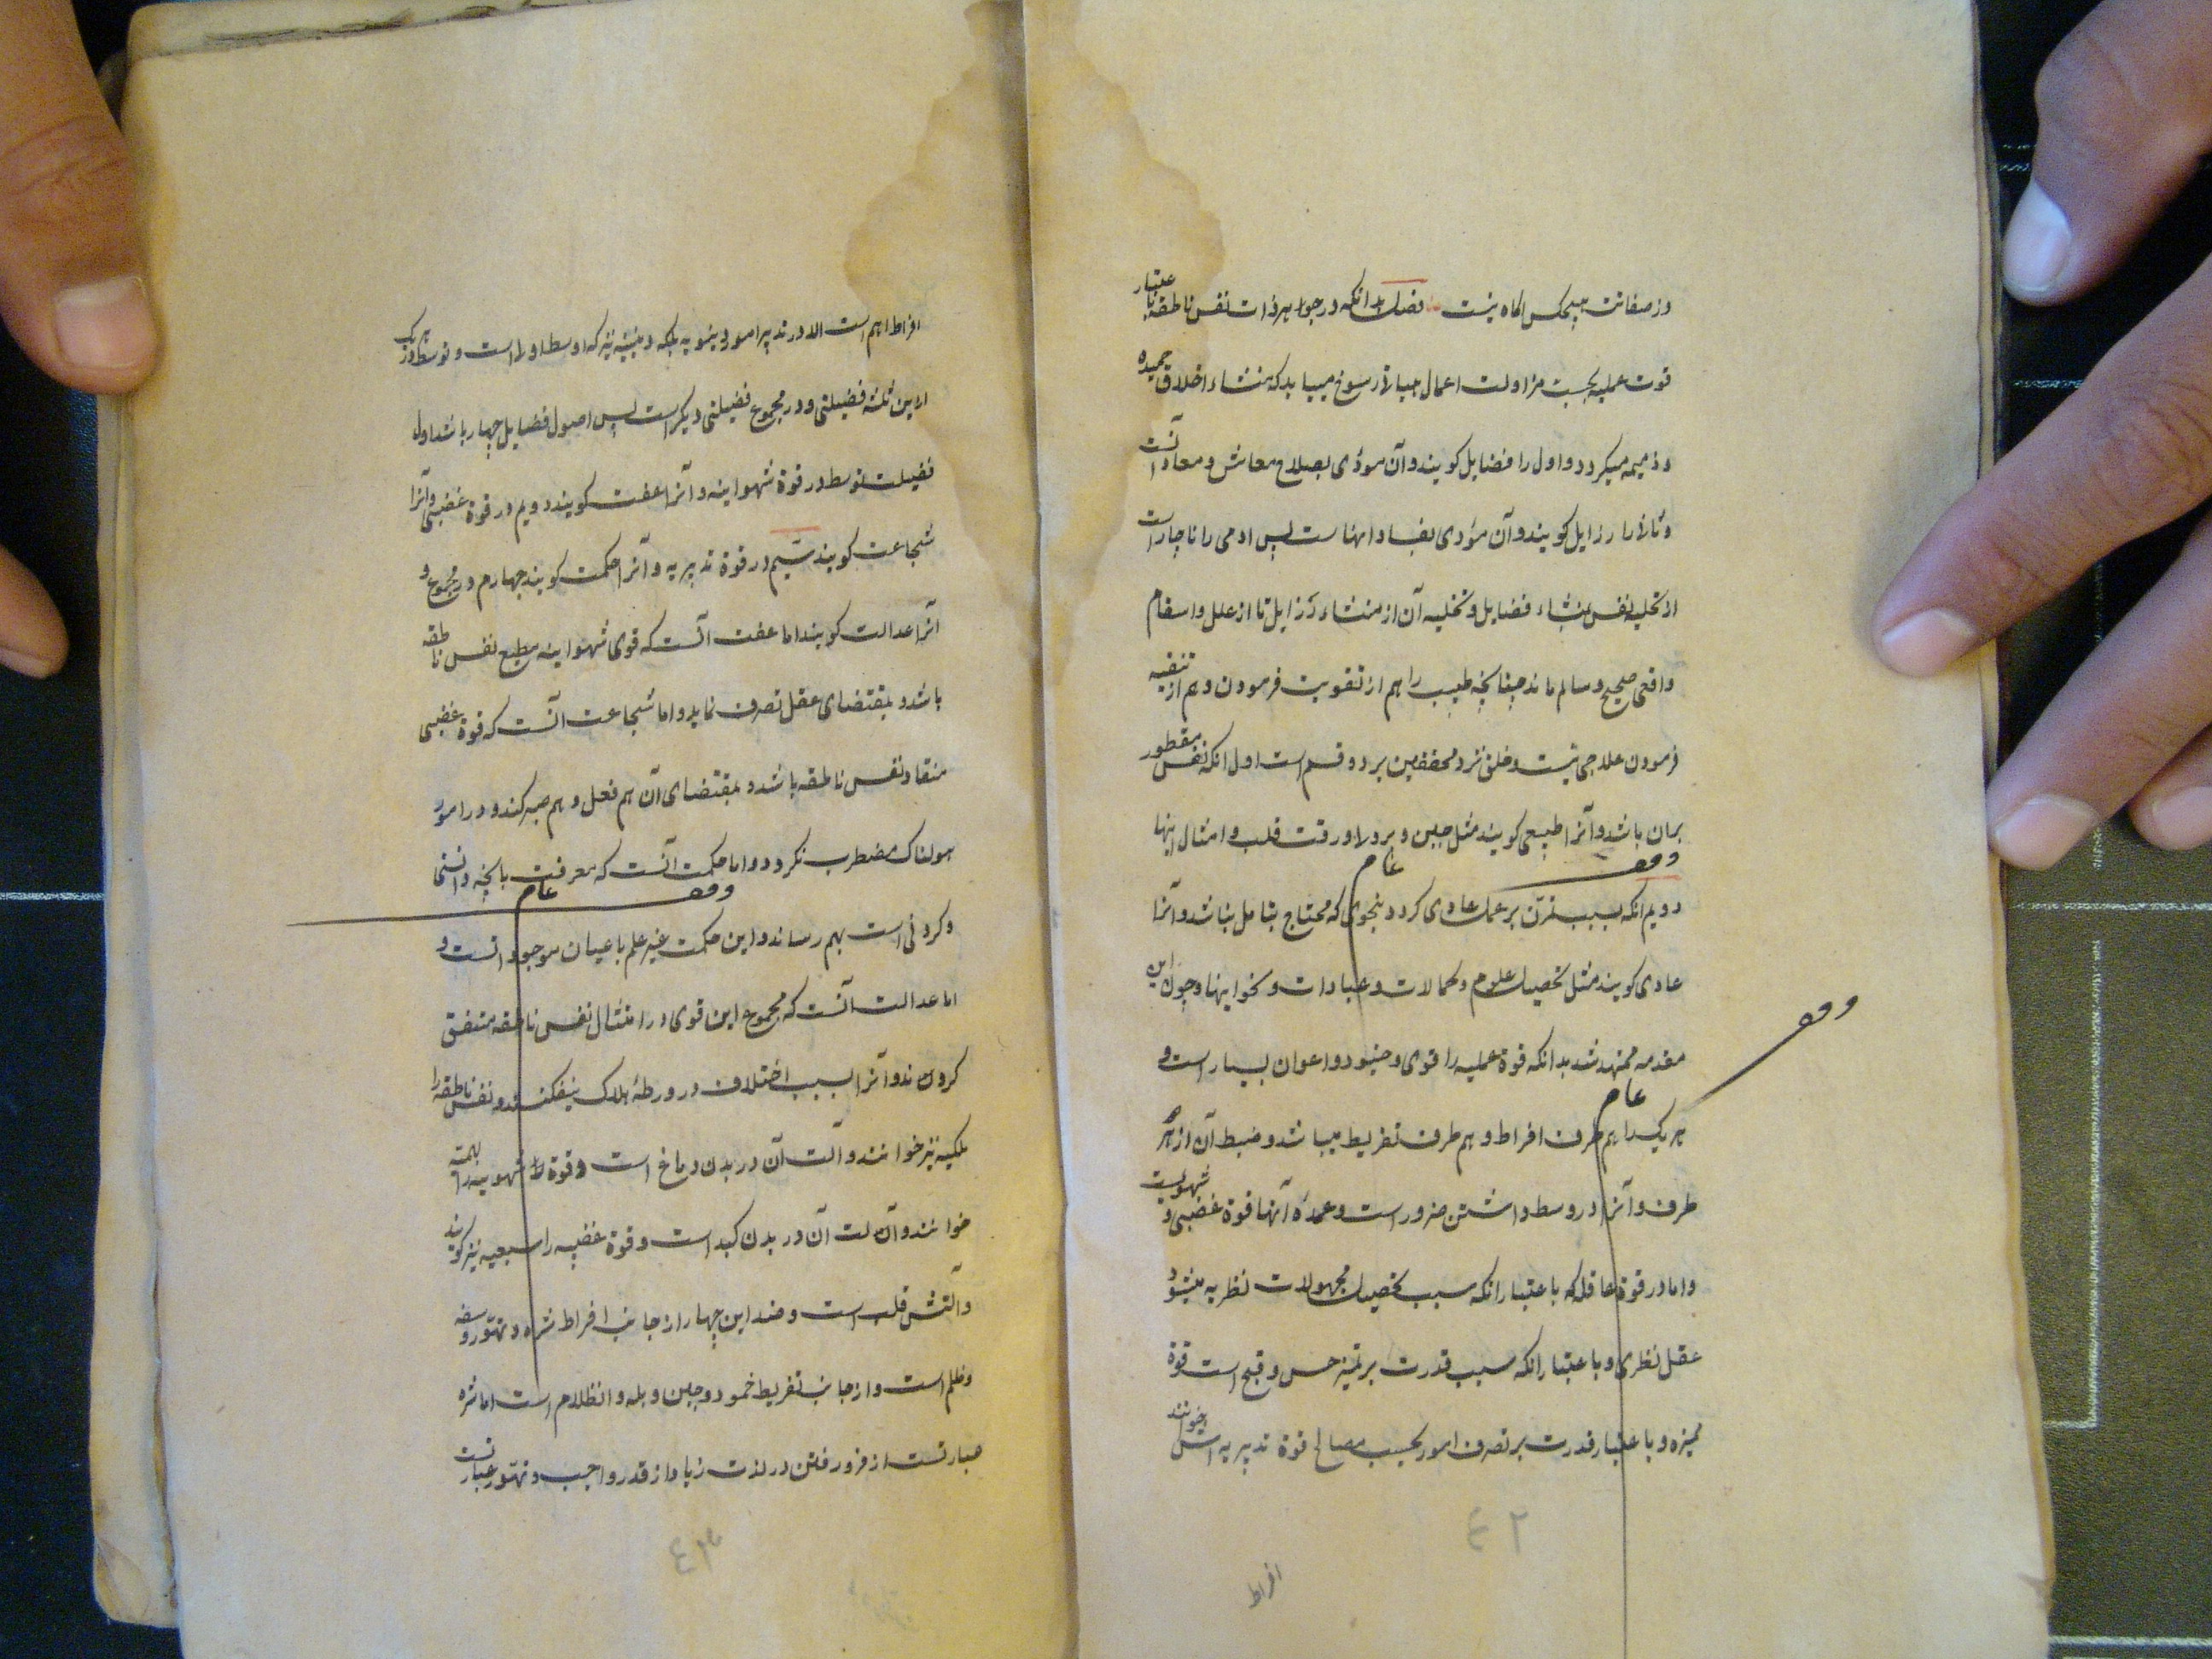 وز صفاتت هیچکس اکاه نیست فصل بدانکه در جوهر ذات نفس ناطقه با عتبار
قوت عملیه بحسب مزاولت اعمال هیاتی رسوخ مییابد که منشاء اخلاق حمیده
و ذمیمه میکردد و اول را فضایل کویند و آن مودی بصلاح معاش و معاد آنست
و ثانی را رزایل کویند و آن مؤدی بفساد اینهاست پس ادمی را ناچار است
از تحلیه نفس بمنشاء فضایل و تخلیه آن از منشاء رزایل تا از علل و اسقام
واقعی صحیح و سالم ماند چنانچه طبیب را هم از تقویت فرمودن و هم از تنقیه
فرمودن علاجی نیست و خلق نزد محققین بر دو قسم است اول انکه نفس مفطور
بران باشد و آنرا طبیعی کویند مثل جبن و بر دلی و رقت قلب و امثال اینها
وقف عام
دویم انکه بسبب تمرن بر عمل عادی کردد بنحوی که محتاج بتامل نباشد و آنرا
عادی کویند مثل تحصیل علوم و کمالات و عبادات و نحو اینها و چون این
مقدمه ممهد شد بدانکه قوة عملیه را قوی و جنود و اعوان بسیار است و
وقف عام
هر یک را هم طرف افراط و هم طرف تفریط میباشد و ضبط آن از هر
طرف و آنرا در وسط داشتن ضرور است و عمدۀ آنها قوة غضبی و شهویست
و اما در قوة عاقله که باعتبار انکه سبب تحصیل مجهولات نظریه میشود
عقل نظری و باعتبار انکه سبب قدرت بر تمیز حسن و قبح است قوة
ممیزه و باعتبار قدرت بر تصرف امور بحسب مصالح قوة تدبیریه اش خوانند
٤٢
افراط
افراط اهم است الا در تدبیر امور دینویه بلکه دینیه نیز که اوسط اولی است و توسط در هر یک
از این ثلثه فضیلتی و در مجموع فضیلتی دیکر است پس اصول فضایل چهار باشد اول
فضیلت توسط در قوة شهوانیه و آنرا عفت کویند دویم در قوة غضبی و آنرا
شجاعت کویند سیم در قوة تدبیریه و آنرا حکمت کویند چهارم در مجموع و
آنرا عدالت کویند اما عفت انست که قوی شهوانیه مطیع نفس ناطقه
باشد و بمقتضای عقل تصرف نماید و اما شجاعت انست که قوة غضبی
منقاد نفس ناطقه باشد و بمقتضای آن هم فعل و هم صبر کند و در امور
هولناک مضطرب نکردد و اما حکمت انست که معرفت بانچه دانستنی
وقف عام
و کردنی است بهم رساند و این حکمت غیر علم باعیان موجوداتست و
اما عدالت انست که مجموع این قوی در امتثال نفس ناطقه متفق
کردند و آنرا بسبب اختلاف در ورطۀ هلاک نیفکنند و نفس ناطقه را
ملکیه نیز خوانند و آلت آن در بدن دماغ است و قوة شهویه را بهیمیه
خوانند و آلت آن در بدن کبد است و قوة غضبیه را سبعیه نیز کویند
و آلتش قلب است و ضد این چهار از جانب افراط شره و تهور و سفه
و ظلم است و از جانب تفریط خمود و جبن و بله و انظلام است اما شره
عبارتست از فرو رفتن در لذت زیاد از قدر واجب و تهور عبارتست
٤٣